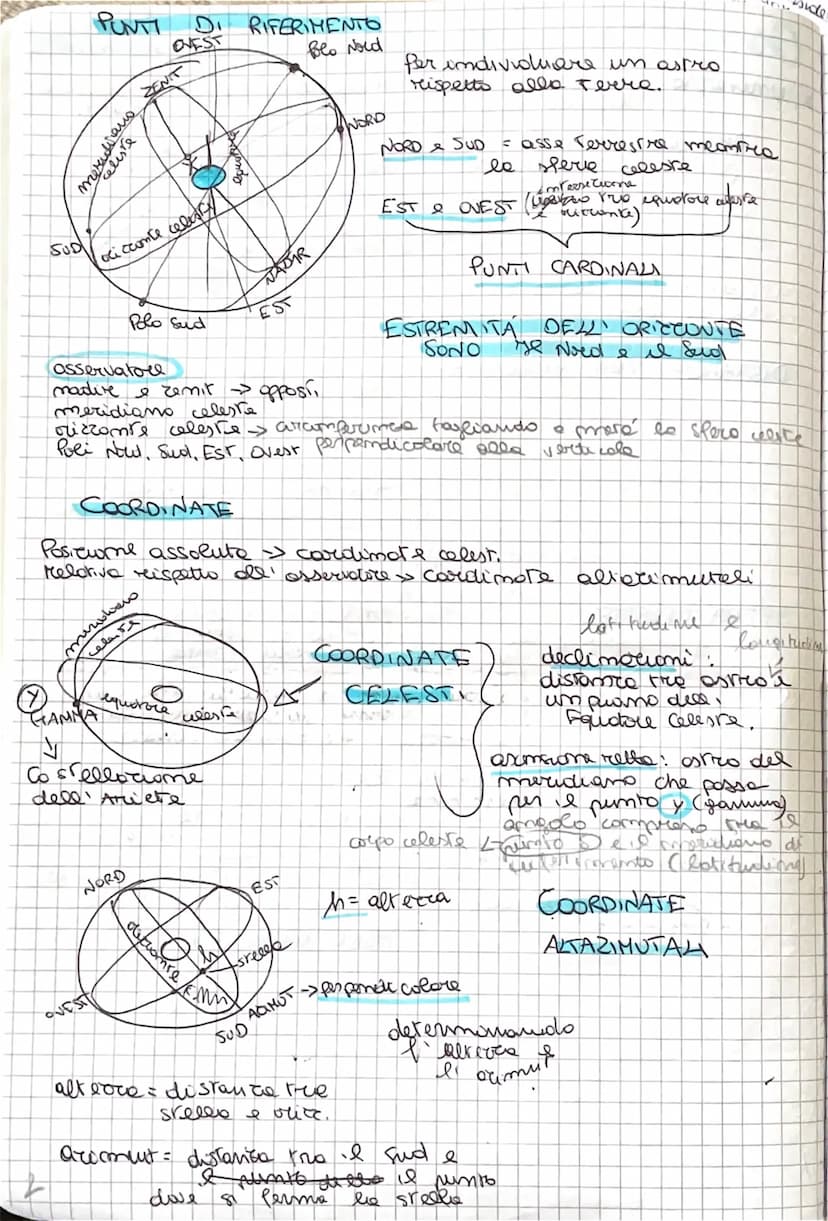 PUNTI DI RIFERIMENTO
OVEST
Polo Nord
ZENIT
NORD
meridiano celeste
orizzonte celeste
SUD
NADIR
EST
Polo Sud
Per individuare un astro
rispetto alla Terra.
NORD e SUD = asse Terrestre incontra
la sfera celeste
EST e OVEST (
intersezione
tra equatore celeste
e orizzonte)
PUNTI CARDINALI
ESTREMITÁ DELL' ORIZZONTE
SONO IL Nord e il Sud
osservatore
nadir e zenit → opposti
meridiano celeste
orizzonte celeste → circonferenza tagliando a metá la sfera celeste
Poli Nord, Sud, Est, Ovest perpendicolare alla verticale
COORDINATE
Posizione assoluta → coordinate celesti
Relativa rispetto all' osservatore → coordinate altazimutali
meridiano
celeste
equatore celeste
γ
GAMMA
Costellazione
dell' Ariete
COORDINATE
CELESTI
latitudine e
longitudine
declinazioni :
distanza tra astro e
un piano dell'
Equatore Celeste.
ascensione retta: astro del
meridiano che passa
per il punto γ (gamma)
angolo compreso tra il
corpo celeste
punto
e il meridiano di
riferimento (latitudine)
NORD
EST
orizzonte
h
stella
OVEST
SUD
AZIMUT → perpendicolare
h = altezza
COORDINATE
ALTAZIMUTALI
determinando
l' altezza e
l' azimut
altezza = distanza tra
stella e orizz.
azimut = distanza tra il Sud e
il punto
dove si ferma la stella